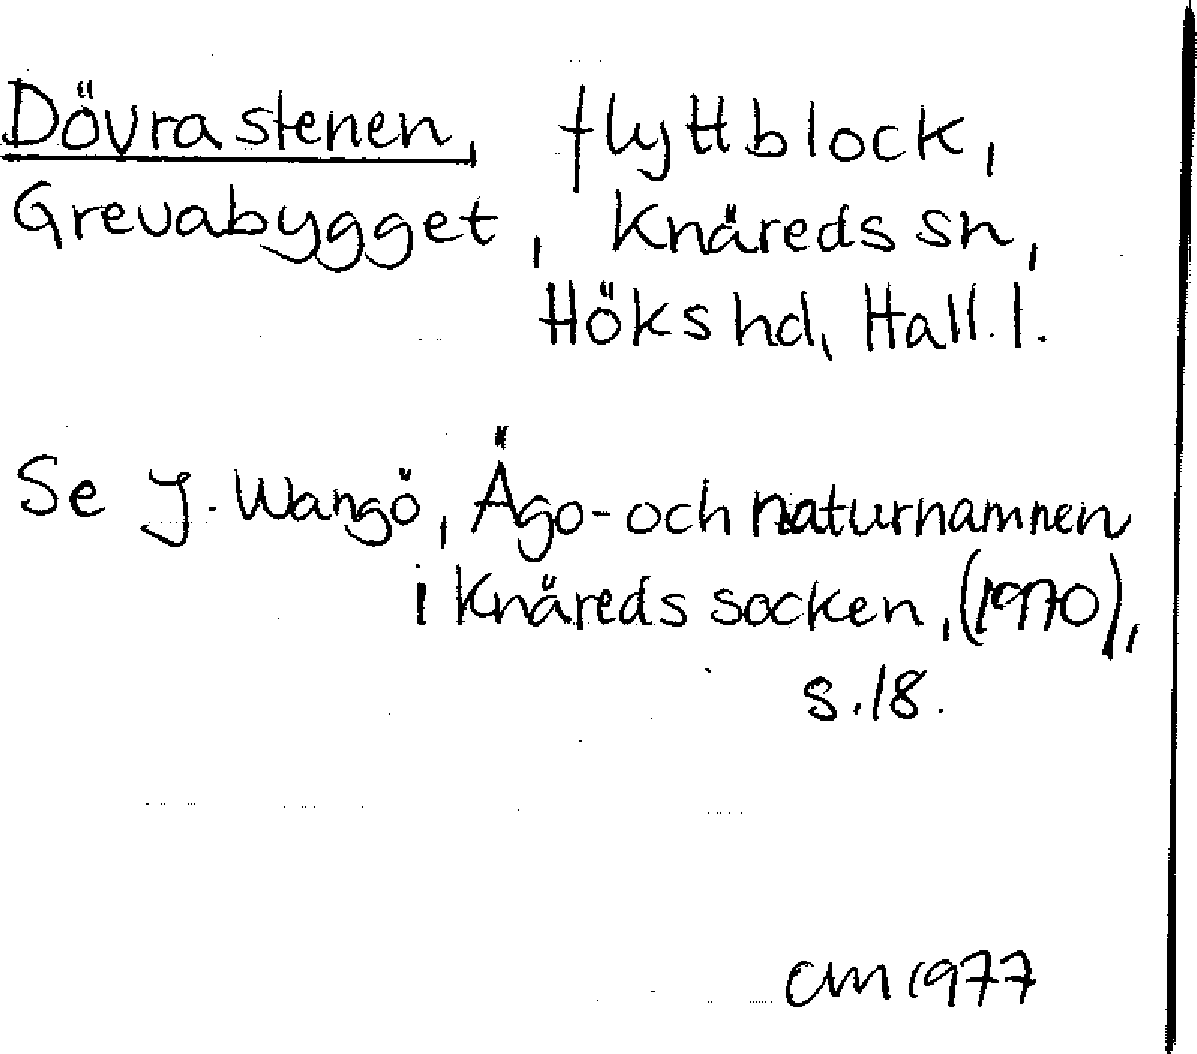 Dövrastenen, flyttblock,
Grevabygget, Knäreds sn,
Höks hd, Hall.l.
Se J. Wangö, Ägo- och naturnamnen
i Knäreds socken, (1970),
s.18.
CM 1977